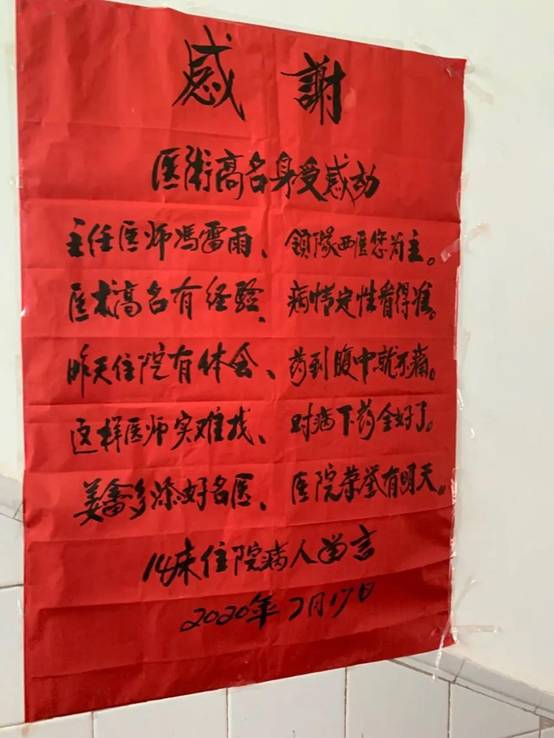 感謝
医術高名身受感动
主任医师馮雷雨、領隊西医您为主。
医术高名有经验、病情定性看得准。
昨天住院有体会、药到腹中就不痛。
这样医师实难找、对病下药全好了。
姜畲多添好名医、医院荣誉有明天。
14床住院病人留言
2020年7月17日